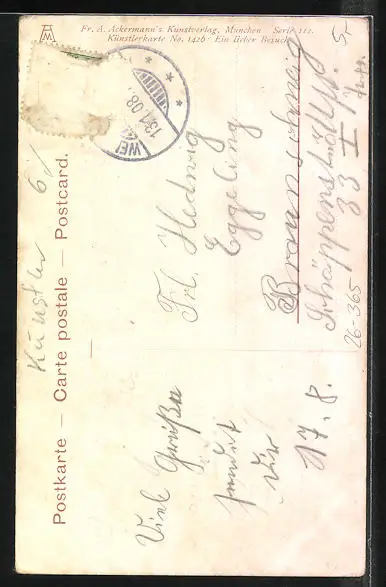 Fr. A. Ackermann's Kunstverlag, München Serie 112.
Künstlerkarte No. 1426: Ein lieber Besuch
5.-
13.1.08.
WEI
Künstler 6
Postkarte — Carte postale — Postcard.
Frl. Hedwig
Eggeling
Braunschweig
33 I
26-365
Viel Grüße
sendet
17. 8.